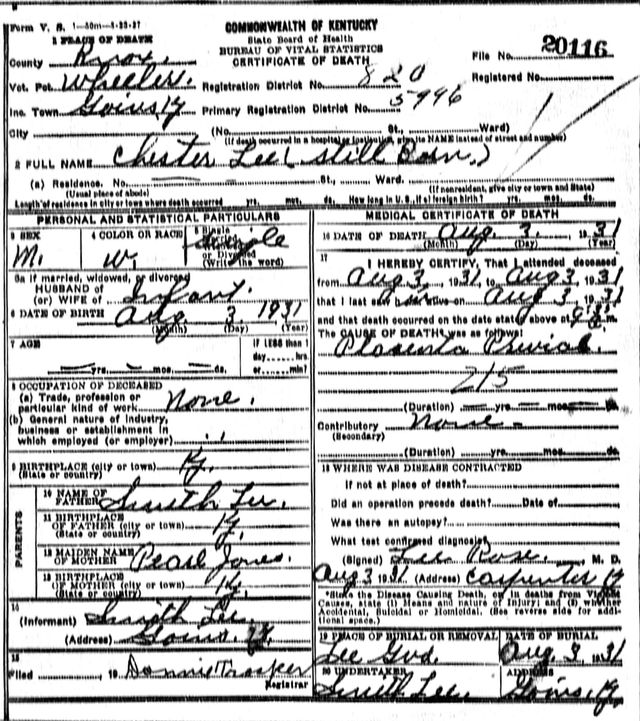 Form V. S. 1-50m-8-23-27
COMMONWEALTH OF KENTUCKY
State Board of Health
BUREAU OF VITAL STATISTICS
CERTIFICATE OF DEATH
File No. 20116
Registered No.
1 PLACE OF DEATH
County Knox.
Vot. Pct. Wheeler. Registration District No. 820
Inc. Town Goins, Ky Primary Registration District No. 5946
City (No. St., Ward)
(If death occurred in a hospital or institution, give its NAME instead of street and number)
2 FULL NAME Chester Lee (Still Born.)
(a) Residence. No. St., Ward.
(Usual place of abode) (If nonresident, give city or town and State)
Length of residence in city or town where death occurred yrs. mos. ds. How long in U. S., if of foreign birth? yrs. mos. ds.
PERSONAL AND STATISTICAL PARTICULARS
3 SEX M. 4 COLOR OR RACE W. 5 Single single
or Divorced
(Write the word)
5a If married, widowed, or divorced
HUSBAND OF
(or) WIFE of Infant.
6 DATE OF BIRTH Aug. 3, 1931
(Month) (Day) (Year)
7 AGE yrs. mos. ds. IF LESS than 1
day hrs.
or min?
8 OCCUPATION OF DECEASED
(a) Trade, profession or
particular kind of work None.
(b) General nature of industry,
business or establishment in
which employed (or employer) ..
9 BIRTHPLACE (city or town) Ky.
(State or country)
PARENTS
10 NAME OF
FATHER Smith Lee.
11 BIRTHPLACE
OF FATHER (city or town) Ky.
(State or country)
12 MAIDEN NAME
OF MOTHER Pearl Jones.
13 BIRTHPLACE
OF MOTHER (city or town) Ky.
(State or country)
14
(Informant) Smith Lee.
(Address) Goins, Ky.
15
Filed 19 Donnie Trosper
Registrar
MEDICAL CERTIFICATE OF DEATH
16 DATE OF DEATH Aug. 3. 1931
(Month) (Day) (Year)
17 I HEREBY CERTIFY, That I attended deceased
from Aug 3, 1931, to Aug 3, 1931
that I last saw alive on Aug 3, 1931
and that death occurred on the date stated above at
The CAUSE OF DEATH was as follows:
Placenta Previa.
215
(Duration) yrs. mos. ds.
Contributory None
(Secondary)
(Duration) yrs. mos. ds.
18 WHERE WAS DISEASE CONTRACTED
if not at place of death?
Did an operation precede death? Date of
Was there an autopsy?
What test confirmed diagnosis?
(Signed) Lee Rose, M. D.
Aug 3 1931 (Address) Carpenter Ky
*State the Disease Causing Death, or in deaths from Violent
Causes, state (1) Means and nature of Injury; and (2) whether
Accidental, Suicidal or Homicidal. (See reverse side for addi-
tional space.)
19 PLACE OF BURIAL OR REMOVAL DATE OF BURIAL
Lee Gvd. Aug 3, 1931
20 UNDERTAKER ADDRESS
Smith Lee. Goins, Ky.